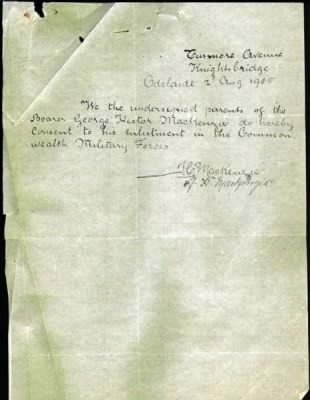 Tusmore Avenue
Knightsbridge
Adelaide 2 Aug 1915
We the undersigned parents of the
Bearer George Hector Mackenzie do hereby
consent to his enlistment in the Common
wealth Military Forces
Mackenzie
Mackenzie